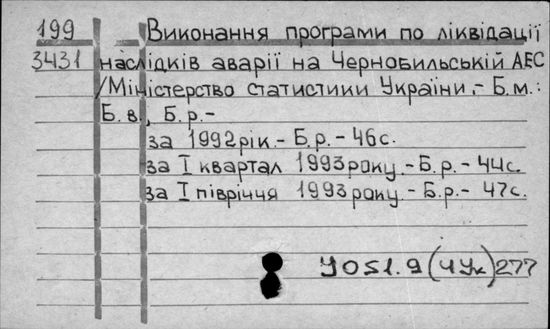 199 Виконання програми по ліквідації
3431 наслідків аварії на Чернобильській АЕС
/Міністерство статистики України.- Б.м.:
Б.в., Б.р.-
за 1992рік.- Б.р.- 46с.
за I квартал 1993року.- Б.р.- 44с.
за I півріччя 1993року.- Б.р.- 47с.
У051.9(4Ук)277